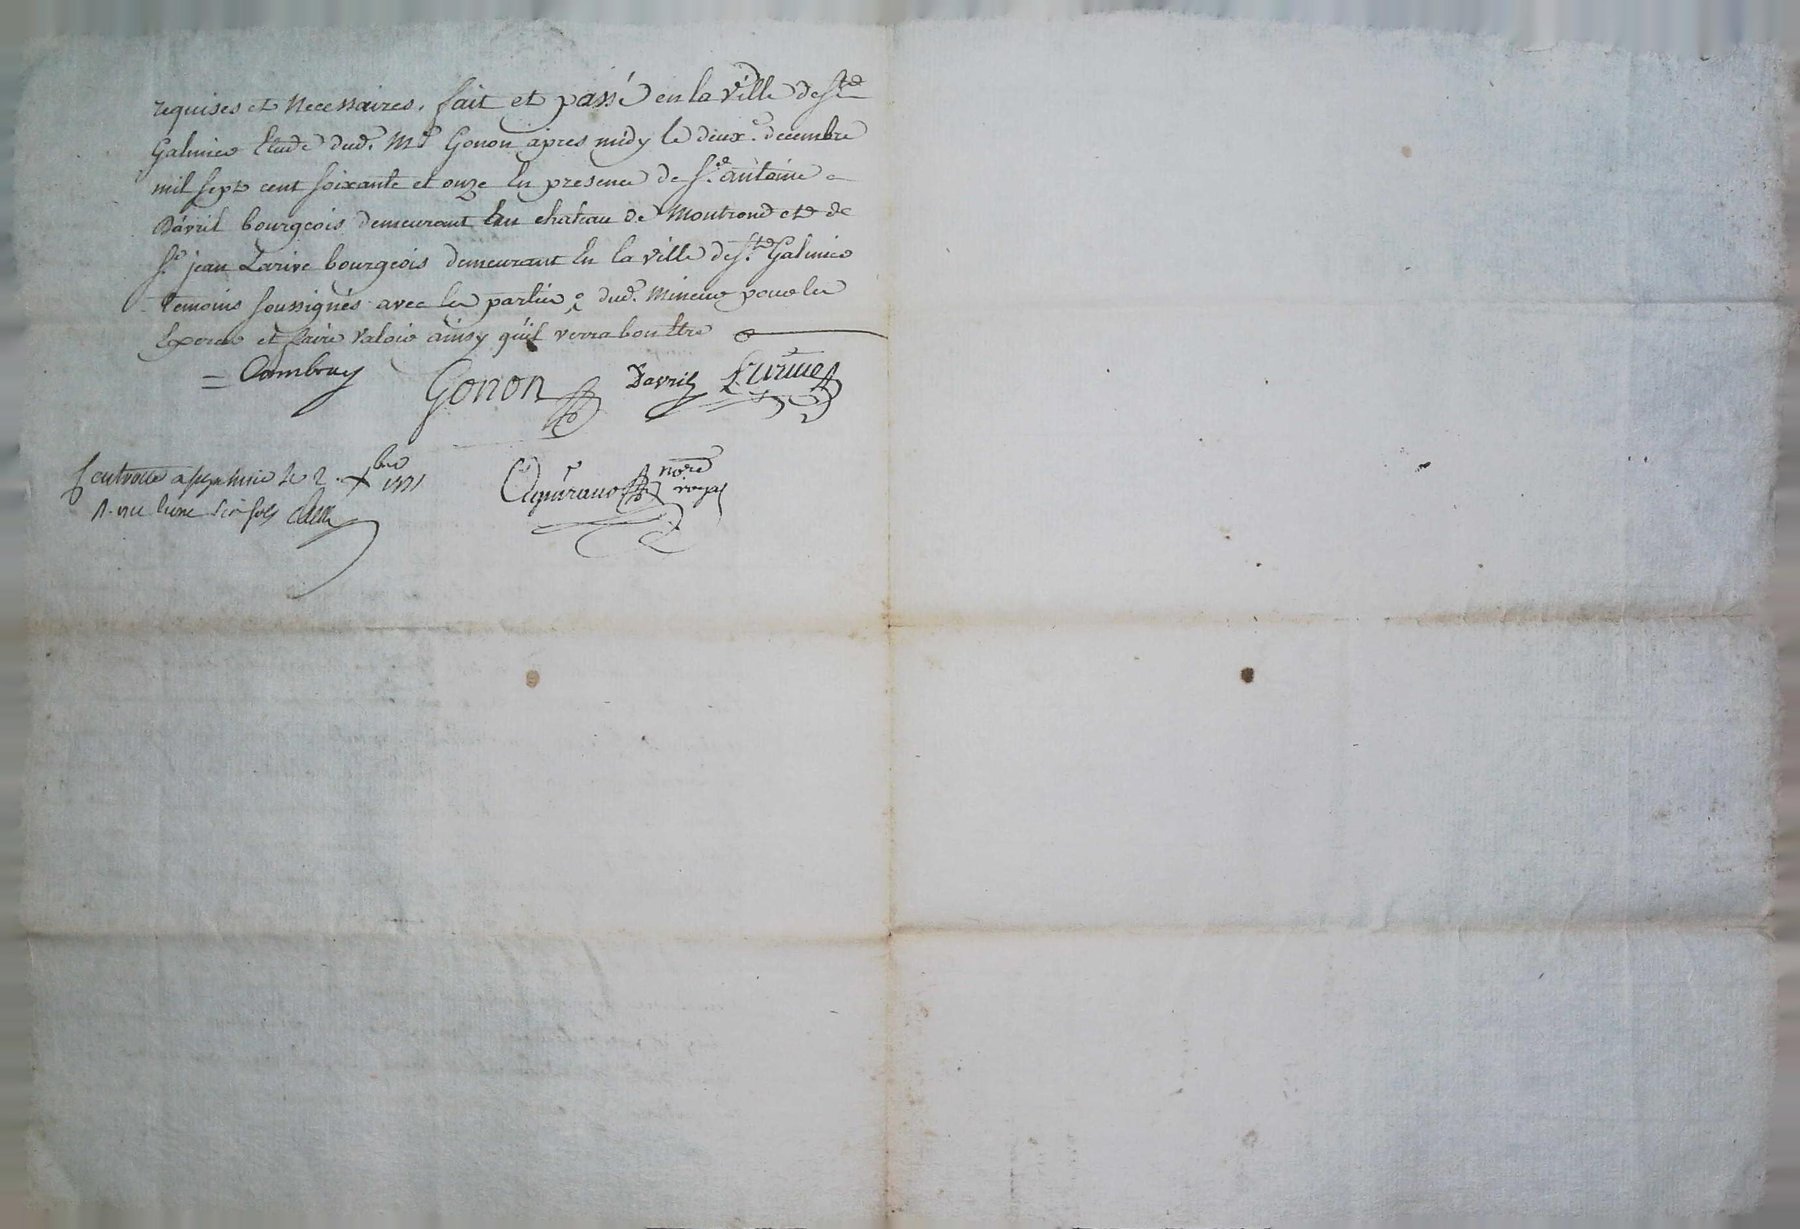 requises et Necessaires, fait et passé en la ville de St
Galmier Etude dud. Me Gonon apres midy le deuxe decembre
mil sept cent soixante et onze En presence de Sr. antoine
D'avril bourgeois demeurant Au chateau de Montrond et de
Sr jean Larive bourgeois demeurant En la ville de St. Galmier
temoins soussignés avec les parties dud. Mineur pour les
Exercer et faire valoir ainsy qu'il verra bon Etre
Cambray Gonon Davril Larive
Controllé a St galmier le 2 Xbre 1771
Reçu six sols
nore royal